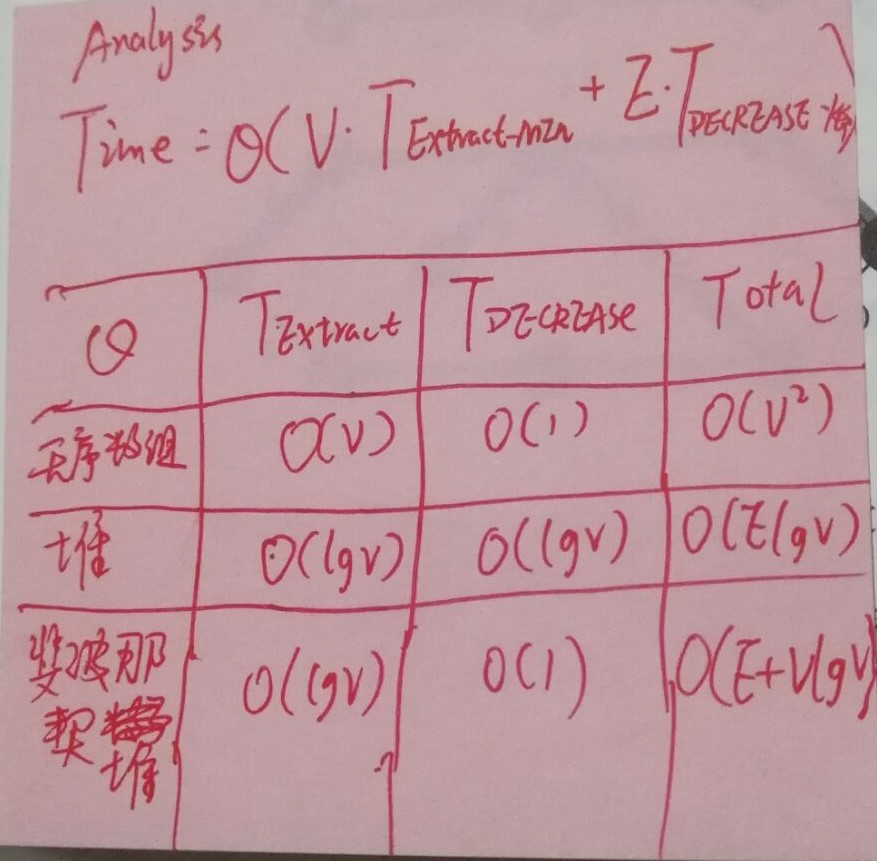 Analysis
Time = O(V·T Extract-min + E·T DECREASE
Q T Extract T DECREASE Total
无序数组 O(V) O(1) O(V²)
堆 O(lgV) O(lgV) O(ElgV)
斐波那 O(lgV) O(1) O(E+VlgV)
契
堆